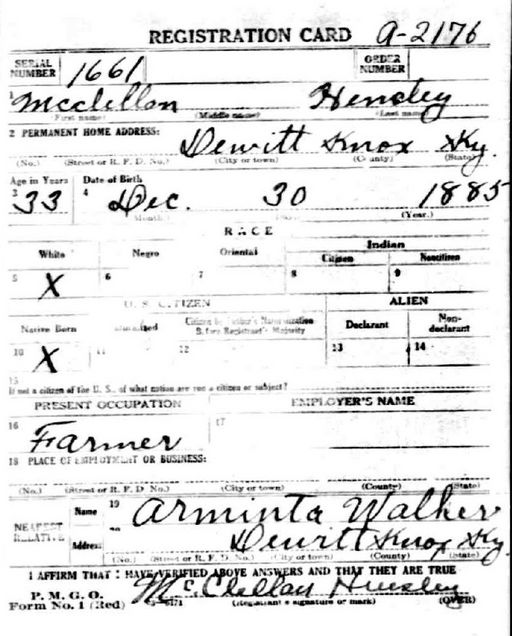 REGISTRATION CARD A-2176
SERIAL NUMBER 1661 ORDER NUMBER
1 Mcclellan Hensley
(First name) (Middle name) (Last name)
2 PERMANENT HOME ADDRESS:
Dewitt Knox Ky.
(No.) (Street or R. F. D. No.) (City or town) (County) (State)
Age in Years Date of Birth
3 33 4 Dec. 30 1885
(Month.) (Day.) (Year.)
RACE
White Negro Oriental Indian
Citizen Noncitizen
5 X 6 7 8 9
U. S. CITIZEN ALIEN
Native Born Naturalized Citizen by Father's Naturalization Before Registrant's Majority Declarant Non-declarant
10 X 11 12 13 14
15
If not a citizen of the U. S., of what nation are you a citizen or subject?
PRESENT OCCUPATION EMPLOYER'S NAME
16 Farmer 17
18 PLACE OF EMPLOYMENT OR BUSINESS:
(No.) (Street or R. F. D. No.) (City or town) (County) (State)
NEAREST RELATIVE Name 19 Arminta Walker
Address 20 Dewitt Knox Ky
(No.) (Street or R. F. D. No.) (City or town) (County) (State)
I AFFIRM THAT I HAVE VERIFIED ABOVE ANSWERS AND THAT THEY ARE TRUE
P. M. G. O.
Form No. 1 (Red) McClellan Hensley
(Registrant's signature or mark) (OVER)